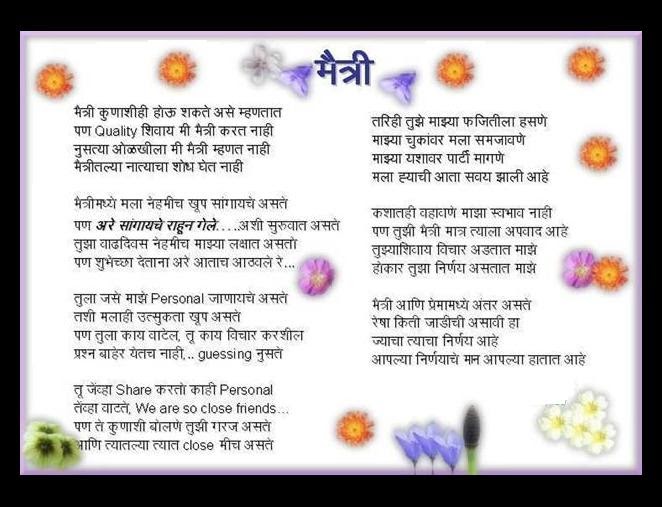 मैत्री
मैत्री कुणाशीही होऊ शकते असे म्हणतात
पण Quality शिवाय मी मैत्री करत नाही
नुसत्या ओळखीला मी मैत्री म्हणत नाही
मैत्रीतल्या नात्याचा शोध घेत नाही
मैत्रीमध्ये मला नेहमीच खूप सांगायचे असते
पण अरे सांगायचे राहून गेले.....अशी सुरुवात असते
तुझा वाढदिवस नेहमीच माझ्या लक्षात असतो
पण शुभेच्छा देताना अरे आताच आठवले रे...
तुला जसे माझे Personal जाणायचे असते
तशी मलाही उत्सुकता खूप असते
पण तुला काय वाटेल, तू काय विचार करशील
प्रश्न बाहेर येतच नाही,.. guessing नुसते
तू जेंव्हा Share करतो काही Personal
तेंव्हा वाटते, We are so close friends...
पण ते कुणाशी बोलणे तुझी गरज असते
आणि त्यातल्या त्यात close मीच असते
तरिही तुझे माझ्या फजितीला हसणे
माझ्या चुकांवर मला समजावणे
माझ्या यशावर पार्टी मागणे
मला ह्याची आता सवय झाली आहे
कशातही वहावणे माझा स्वभाव नाही
पण तुझी मैत्री मात्र त्याला अपवाद आहे
तुझ्याशिवाय विचार अडतात माझे
होकार तुझा निर्णय असतात माझे
मैत्री आणि प्रेमामध्ये अंतर असते
रेषा किती जाडीची असावी हा
ज्याचा त्याचा निर्णय आहे
आपल्या निर्णयाचे मान आपल्या हातात आहे